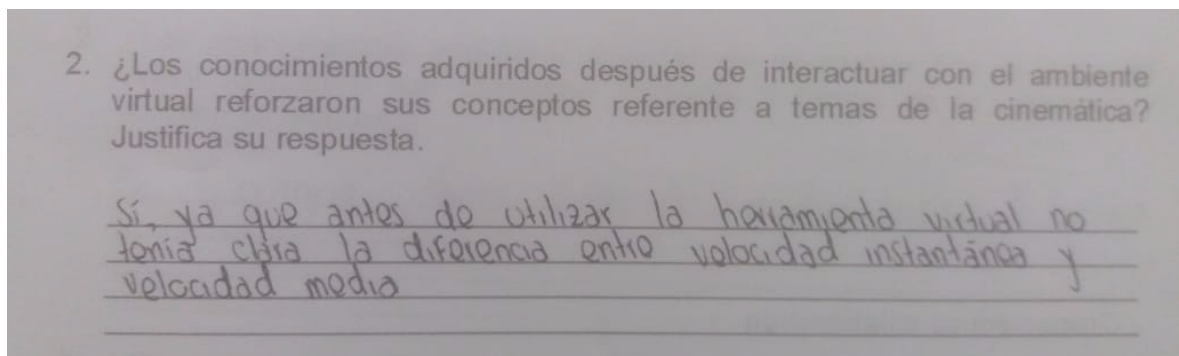 2. ¿Los conocimientos adquiridos después de interactuar con el ambiente
virtual reforzaron sus conceptos referente a temas de la cinemática?
Justifica su respuesta.
Sí, ya que antes de utilizar la herramienta virtual no
tenía clara la diferencia entre velocidad instantánea y
velocidad media